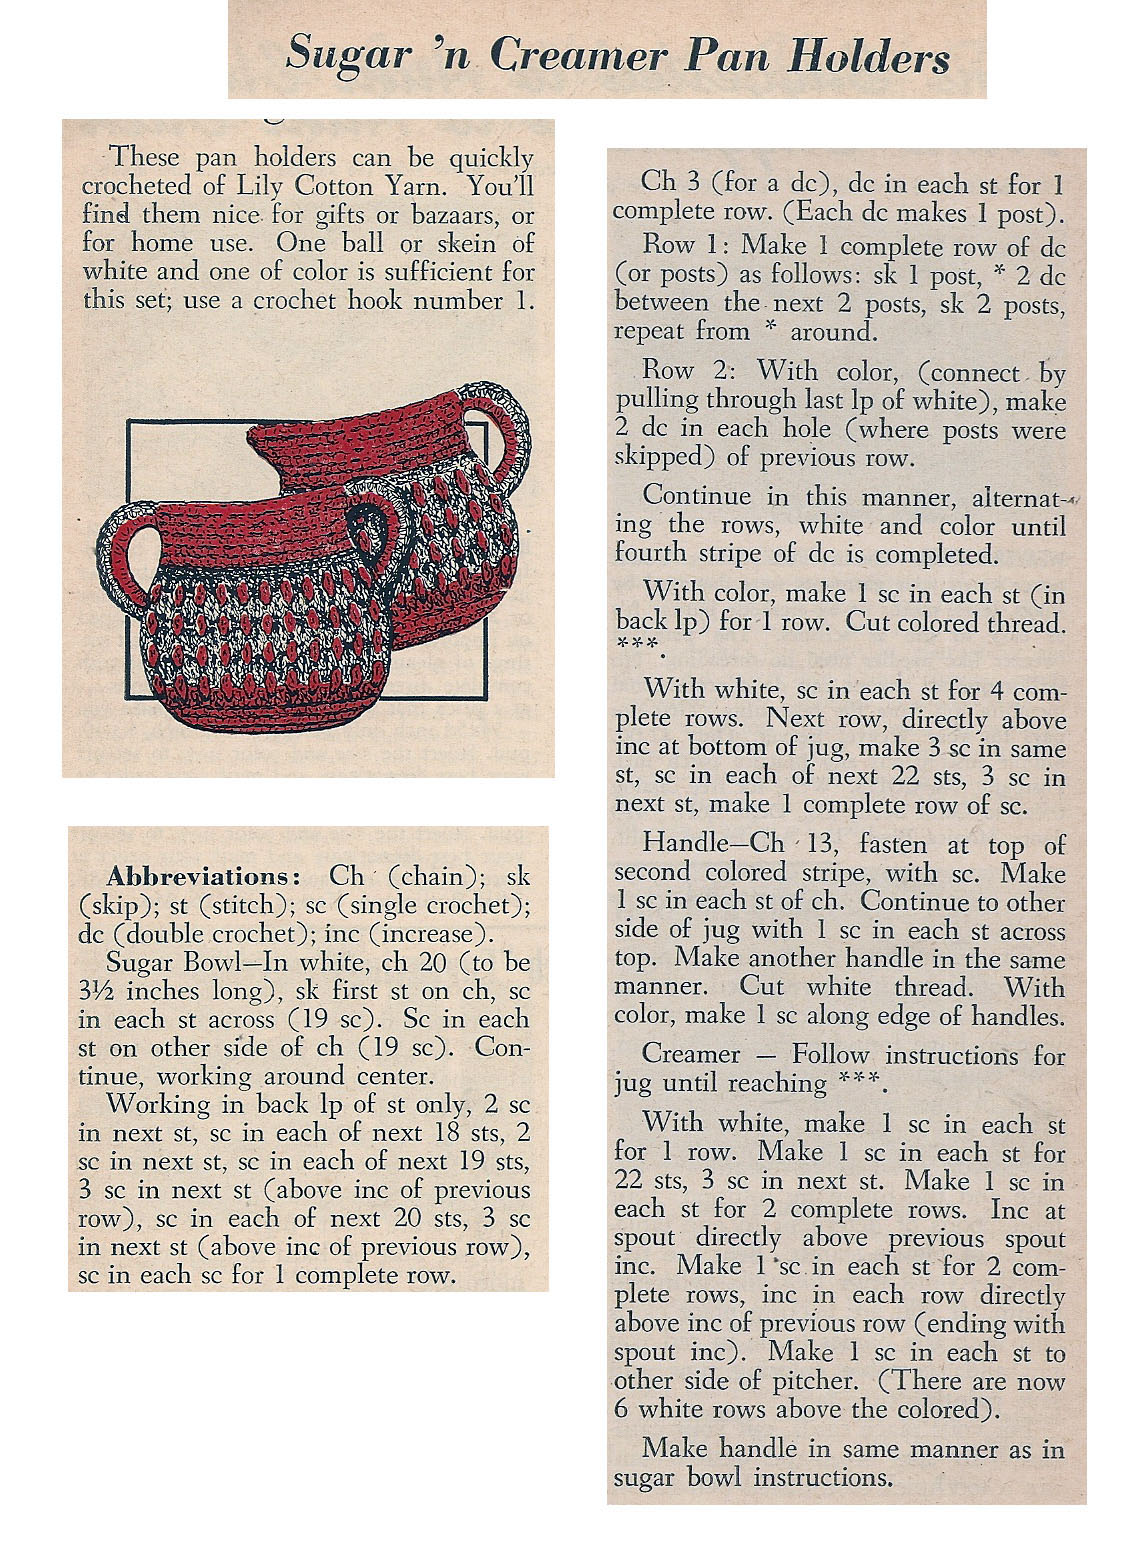 Sugar 'n Creamer Pan Holders
These pan holders can be quickly
crocheted of Lily Cotton Yarn. You'll
find them nice for gifts or bazaars, or
for home use. One ball or skein of
white and one of color is sufficient for
this set; use a crochet hook number 1.
Abbreviations: Ch (chain); sk
(skip); st (stitch); sc (single crochet);
dc (double crochet); inc (increase).
Sugar Bowl—In white, ch 20 (to be
3½ inches long), sk first st on ch, sc
in each st across (19 sc). Sc in each
st on other side of ch (19 sc). Con-
tinue, working around center.
Working in back lp of st only, 2 sc
in next st, sc in each of next 18 sts, 2
sc in next st, sc in each of next 19 sts,
3 sc in next st (above inc of previous
row), sc in each of next 20 sts, 3 sc
in next st (above inc of previous row),
sc in each sc for 1 complete row.
Ch 3 (for a dc), dc in each st for 1
complete row. (Each dc makes 1 post).
Row 1: Make 1 complete row of dc
(or posts) as follows: sk 1 post, * 2 dc
between the next 2 posts, sk 2 posts,
repeat from * around.
Row 2: With color, (connect by
pulling through last lp of white), make
2 dc in each hole (where posts were
skipped) of previous row.
Continue in this manner, alternat-
ing the rows, white and color until
fourth stripe of dc is completed.
With color, make 1 sc in each st (in
back lp) for 1 row. Cut colored thread.
***.
With white, sc in each st for 4 com-
plete rows. Next row, directly above
inc at bottom of jug, make 3 sc in same
st, sc in each of next 22 sts, 3 sc in
next st, make 1 complete row of sc.
Handle—Ch 13, fasten at top of
second colored stripe, with sc. Make
1 sc in each st of ch. Continue to other
side of jug with 1 sc in each st across
top. Make another handle in the same
manner. Cut white thread. With
color, make 1 sc along edge of handles.
Creamer — Follow instructions for
jug until reaching ***.
With white, make 1 sc in each st
for 1 row. Make 1 sc in each st for
22 sts, 3 sc in next st. Make 1 sc in
each st for 2 complete rows. Inc at
spout directly above previous spout
inc. Make 1 sc in each st for 2 com-
plete rows, inc in each row directly
above inc of previous row (ending with
spout inc). Make 1 sc in each st to
other side of pitcher. (There are now
6 white rows above the colored).
Make handle in same manner as in
sugar bowl instructions.